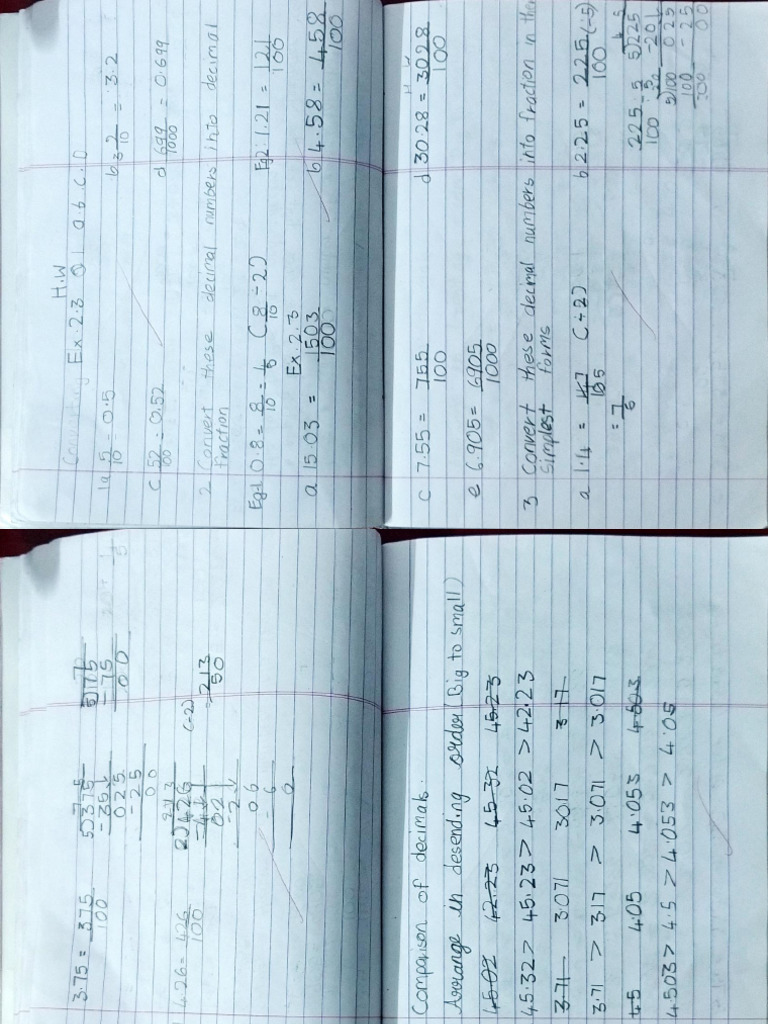 H.W
Converting Ex. 2.3 Q1 a.b.c.D
1a 5/10 = 0.5 b 3 2/10 = 3.2
c 52/100 = 0.52 d 699/1000 = 0.699
2 Convert these decimal numbers into decimal
fraction
Eg1 0.8 = 8/10 = 4/5 (8/10 ÷ 2) Eg2: 1.21 = 121/100
Ex. 2.3
a 15.03 = 1503/100 b 4.58 = 458/100
H.W
c 7.55 = 755/100 d 30.28 = 3028/100
e 6.905 = 6905/1000
3 Convert these decimal numbers into fraction in their
simplest forms
a 1.4 = (÷2) b 2.25 = 225/100 (÷5)
= 7/5
225/100 ÷ 5
3.75 = 375/100
4.26 = 426/100 (÷2) = 213/50
Comparison of decimals.
Arrange in desending order (Big to small)
45.02 42.23 45.32 45.23
45.32 > 45.23 > 45.02 > 42.23
3.71 3.071 3.017 3.17
3.71 > 3.17 > 3.071 > 3.017
4.5 4.05 4.053 4.503
4.503 > 4.5 > 4.053 > 4.05